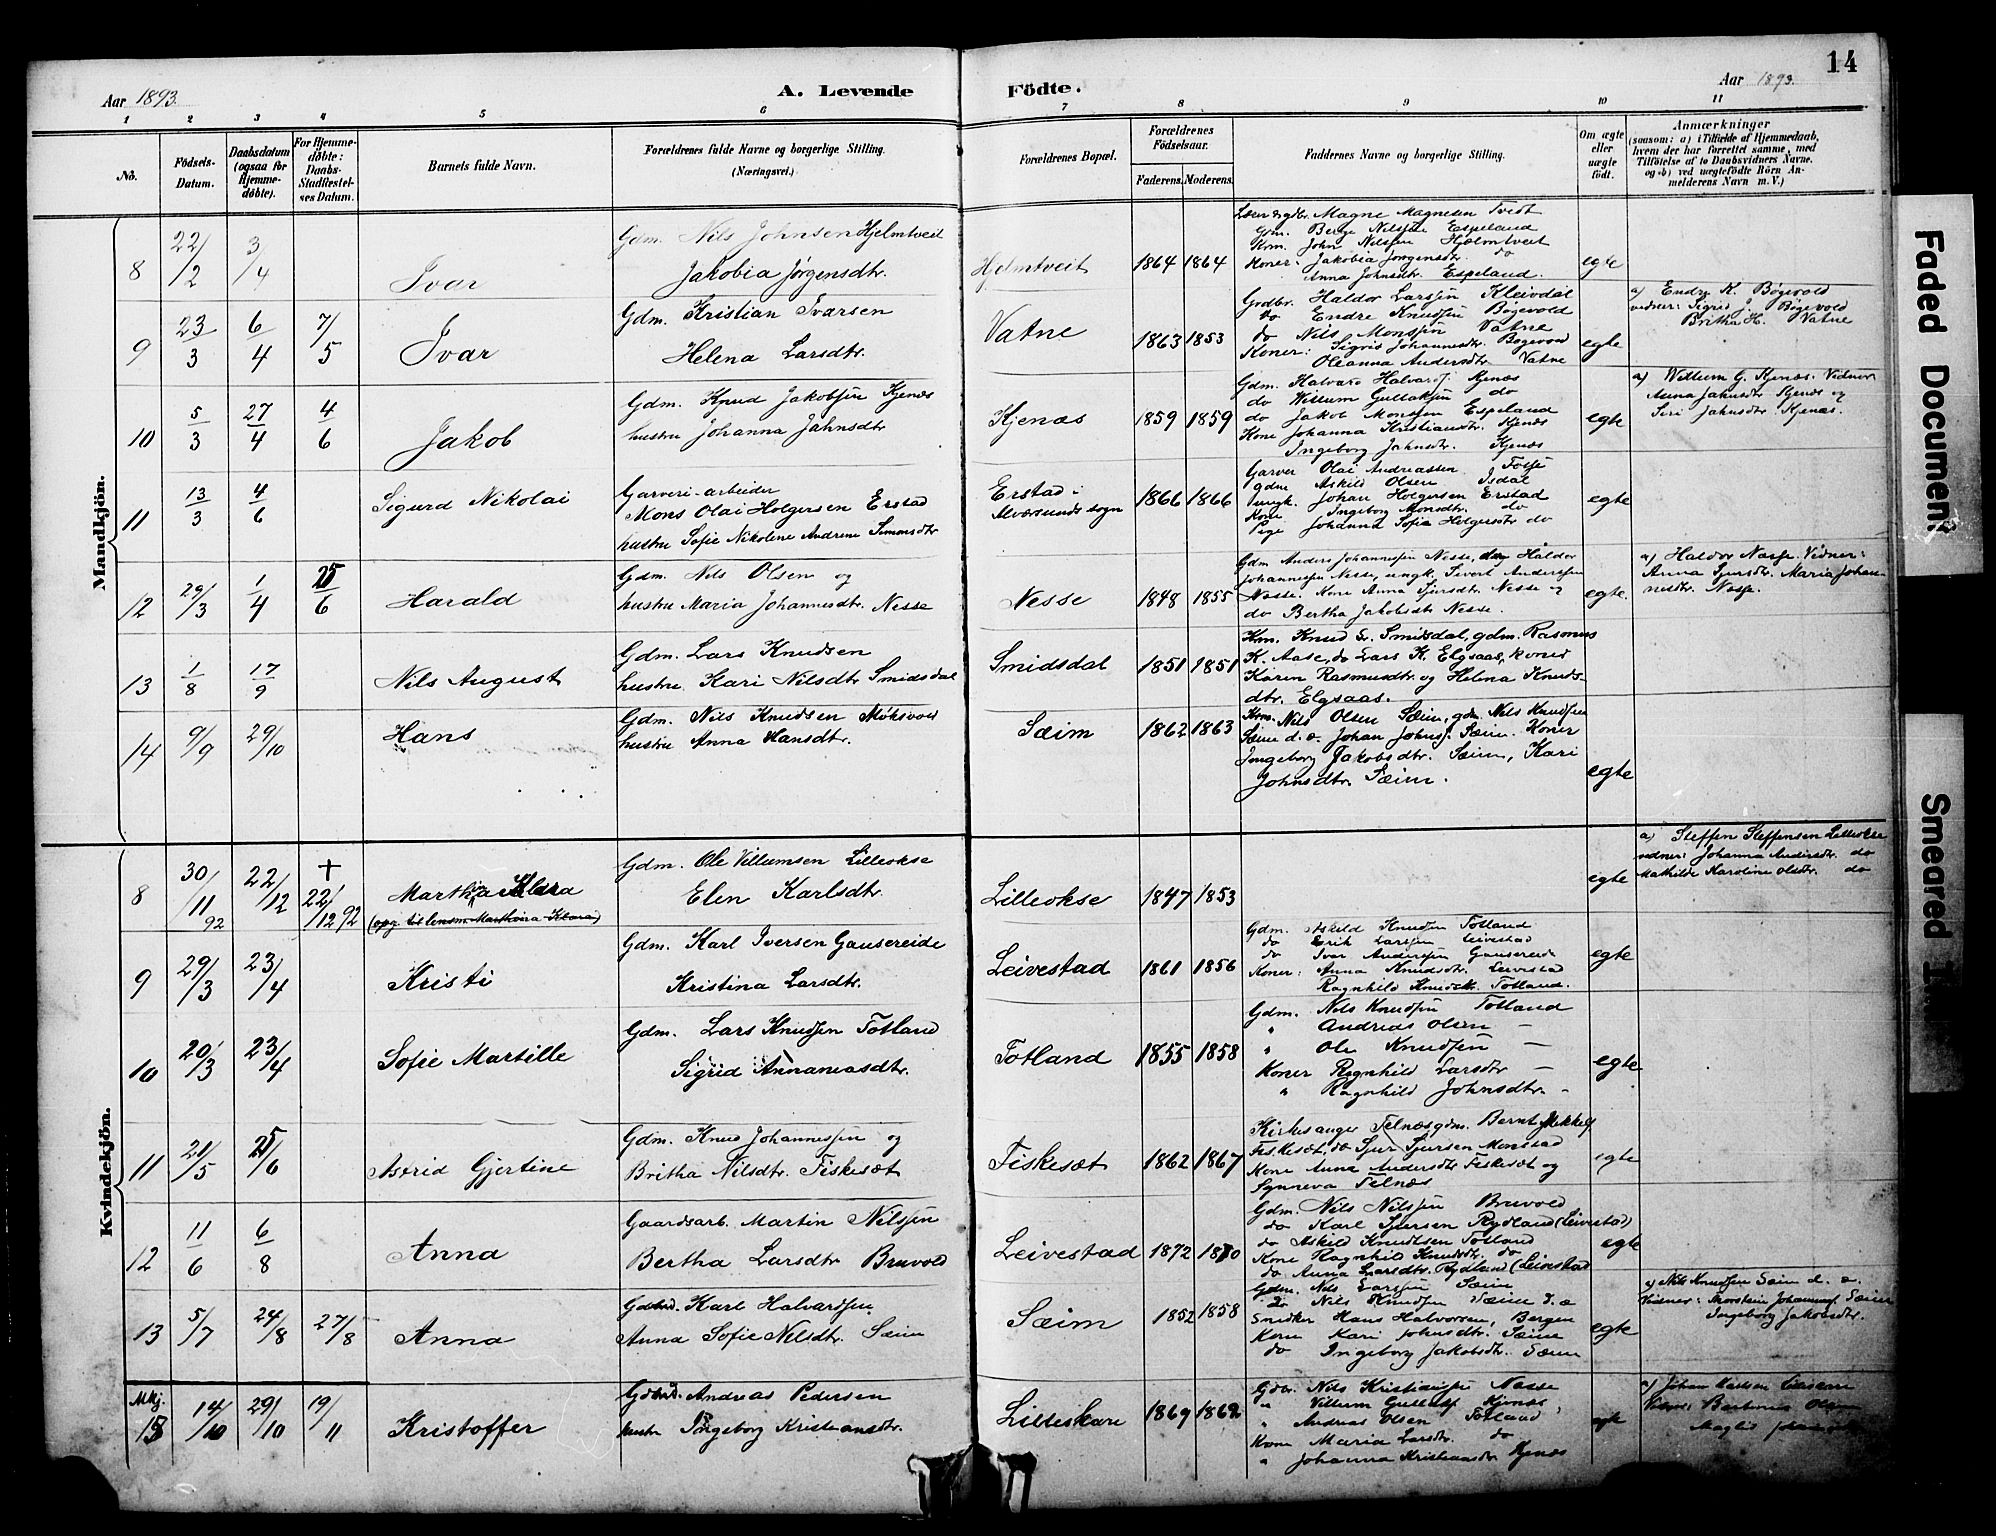 14
Aar 1893.
A. Levende Födte.
Aar 1893.
1 2 3 4 5 6 7 8 9 10 11
No.
Födsels-Datum.
Daabsdatum (ogsaa for Hjemme-døbte).
For Hjemme-døbte: Daabs-Stadfæstel-ses Datum.
Barnets fulde Navn.
Forældrenes fulde Navne og borgerlige Stilling.
(Næringsvei.)
Forældrenes Bopæl.
Forældrenes Födselsaar.
Faderens. Moderens.
Faddernes Navne og borgerlige Stilling.
Om ægte eller uægte født.
Anmærkninger
(saasom: a) i Tilfælde af Hjemmedaab,
hvem der har forrettet samme, med
Tilföielse af to Daabsvidners Navne.
og b) ved uægtefødte Börn An-
melderens Navn m. V.)
Mandkjön.
8 22/2 3/4 Ivar
Gdm. Nils Johnsen Hjelmtveit
Jakobia Jørgensdtr.
Hjelmtveit 1864 1864
Magne Magnesen Tvedt
Gm. Berge Nilssen Espeland
Krm. John Nilssen Hjelmtveit
Koner: Jakobia Jørgensdtr. do
Anna Johnsdtr. Espeland.
egte
9 23/3 6/4 7/5 Ivar
Gdm. Kristian Ivarsen
Helena Larsdtr.
Vatne 1863 1853
Grdbr. Haldor Larssen Kleivdal
do Endre Knudssen Bøgevold
do Nils Monssen Vatne
Koner: Sigrid Johannesdtr. Bøgevold
Oleanna Andersdtr Vatne
egte
a) Endre K. Bøgevold
vidner: Sigrid J. Bøgevold
Britha H. Vatne
10 5/3 27/4 4/6 Jakob
Gdm. Knud Jakobssen Kjenæs
hustru Johanna Jahnsdtr
Kjenæs 1859 1859
Gdm. Halvard Halvardss. Kjenæs
do Willum Gullakssen do
do Jakob Monssen Espeland
Kone Johanna Kristiansdtr. Kjenæs
Ingeborg Jahnsdtr. Kjenæs
egte
a) Willum G. Kjenæs. Vidner
Anna Jahnsdtr Kjenæs og
Siri Jahnsdtr. Kjenæs.
11 13/3 4/6 Sigurd Nikolai
Garveri-arbeider
Mons Olai Holgersen Erstad
hustru Sofie Nikoline Andrine Simonsdtr
Erstad i
Alversunds sogn
1866 1866
Garver Olai Andreassen Fosse
gdm Askild Olsen Isdal
ungk. Johan Holgersen Erstad
Kone Ingeborg Monsdtr. do
Pige Johanna Sofie Holgersdtr do
egte
12 29/3 1/4 25/6 Harald
Gdm. Nils Olsen og
hustru Maria Johannesdtr. Nesse
Nesse 1848 1855
Gdm Anders Johannessen Nesse, Haldor
Johannessen Nesse, ungk. Sivert Anderssen
Nesse. Kone Anna Sjursdtr Nesse og
do Bertha Jakobsdtr Nesse.
egte.
a) Haldor Næsse. Vidner:
Anna Sjursdtr. Maria Johan-
nesdtr. Næsse.
13 1/8 17/9 Nils August
Gdm. Lars Knudsen
hustru Kari Nilsdtr Smidsdal
Smidsdal 1851 1851
Krm. Knud Smidsdal, gdm. Rasmus
K. Aase, do Lars K. Elgsaas, koner
Karen Rasmusdtr. og Helena Knuds-
dtr. Elgsaas.
14 9/9 29/10 Hans
Gdm. Nils Knudsen Møksvold
hustru Anna Hansdtr.
Sæim 1862 1863
Krm. Nils Olsen Sæim, gdm. Nils Knudssen
Sæim d. æ. Johan Johnss. Sæim. Koner
Ingeborg Jakobsdtr. Sæim, Kari
Johnsdtr. Sæim.
egte
Kvindekjön.
8 30/11 92 22/12 † 22/12 92 Klara
Gdm. Ole Villumsen Lilleokse
Elen Karlsdtr.
Lilleokse 1847 1853
egte
a) Steffen Steffensen Lilleokse
vidner: Johanna Andersdtr. do
Mathilde Karoline Olsdtr. do
9 29/3 23/4 Kristi
Gdm. Karl Iversen Gausereide
Kristina Larsdtr.
Leivestad 1861 1856
Gdm. Askild Knudsen Totland
do Erik Larssen Leivestad
do Ivar Anderssen Gausereide
Koner: Anna Knudsdtr. Leivestad
Ragnhild Knudsdtr. Totland.
egte
10 20/3 23/4 Sofie Martille
Gdm. Lars Knudssen Totland
Sigrid Annaniasdtr.
Totland 1855 1858
Gdm. Nils Knudssen Totland
" Andreas Olsen —
" Ole Knudssen —
Koner Ragnhild Larsdtr —
" Ragnhild Johnsdtr. -
egte
11 21/5 25/6 Astrid Gjertine
Gdm. Knud Johannessen og
Britha Nilsdtr. Fiskesæt
Fiskesæt 1862 1867
Kirkesanger Felnæs, gdm. Bernt Mikkels.
Fiskesæt, do Sjur Sjursen Monstad
Kone Anna Andersdtr Fiskesæt og
Synneva Felnæs
egte
12 11/6 6/8 Anna
Gaardsarb. Martin Nilssen
Bertha Larsdtr Bruvold
Leivestad 1872 1870
Gdm. Nils Nilssen Bruvold
do Karl Sjursen Rydland (Leivestad)
do Askild Knudtsen Totland
Kone Ragnhild Knudsdtr. do
do Anna Larsdtr. Rydland (Leivestad
egte
13 5/7 24/8 27/8 Anna
Karl Halvardssen
Anna Sofie Nilsdtr. Sæim
Sæim 1852 1858
Gdm. Nils Larssen Sæim
do Nils Knudssen Sæim d. æ
Snedker Hans Halvorsen, Bergen
Kone Kari Johnsdtr. Sæim
do Ingeborg Jakobsdtr. Sæim
egte
a) Nils Knudssen Sæim d. æ.
Vidner: Thorstein Johanness Sæim
Ingeborg Jakobsdtr.
Mkj.
15 14/10 29/10 19/11 Kristoffer
Andreas Pedersen
hustru Ingeborg Kristiansdtr.
Lilleskare 1869 1862
Gdbr. Nils Kristianssen Næsse
" Villum Gullakss Kjenæs,
" Andreas Olsen Totland
Kone Maria Larsdtr. do
" Johanna Kristiansdtr Kjenæs
egte
Vidner:
Faded Document
Smeared